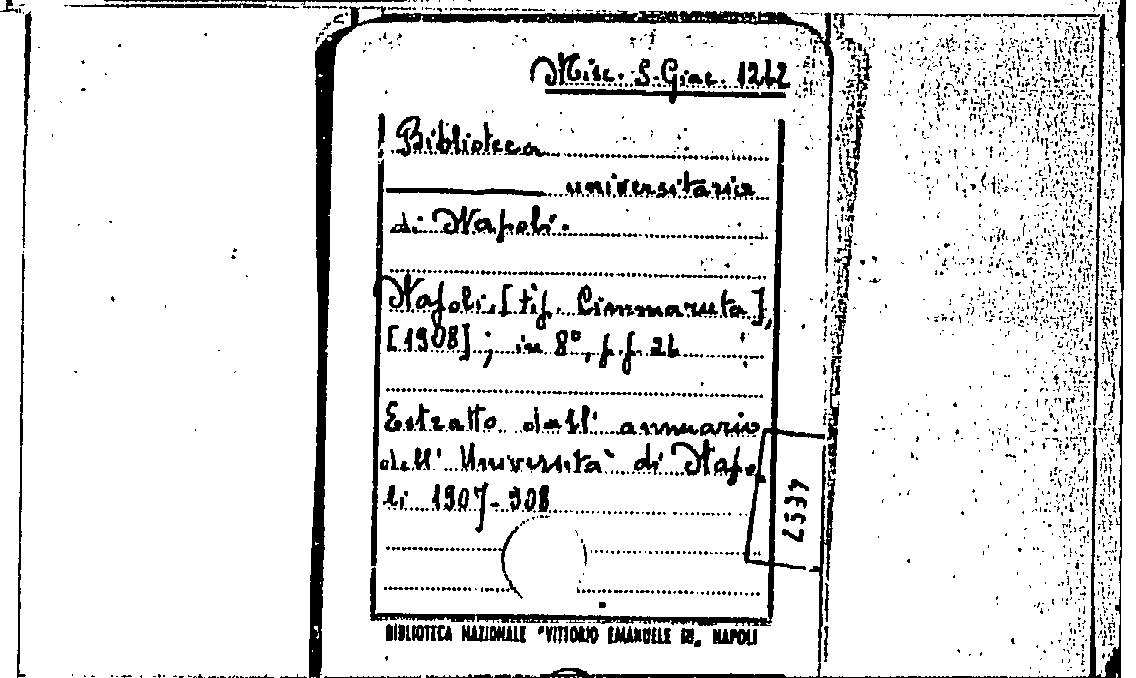 Misc. S. Giac. 1262
Biblioteca
universitaria
di Napoli.
Napoli, [tip. Cimmaruta],
[1908]; in 8°, p.p. 26
Estratto dall' annuario
dell' Università di Napo_
li 1907-908
2537
BIBLIOTECA NAZIONALE "VITTORIO EMANUELE III„ NAPOLI